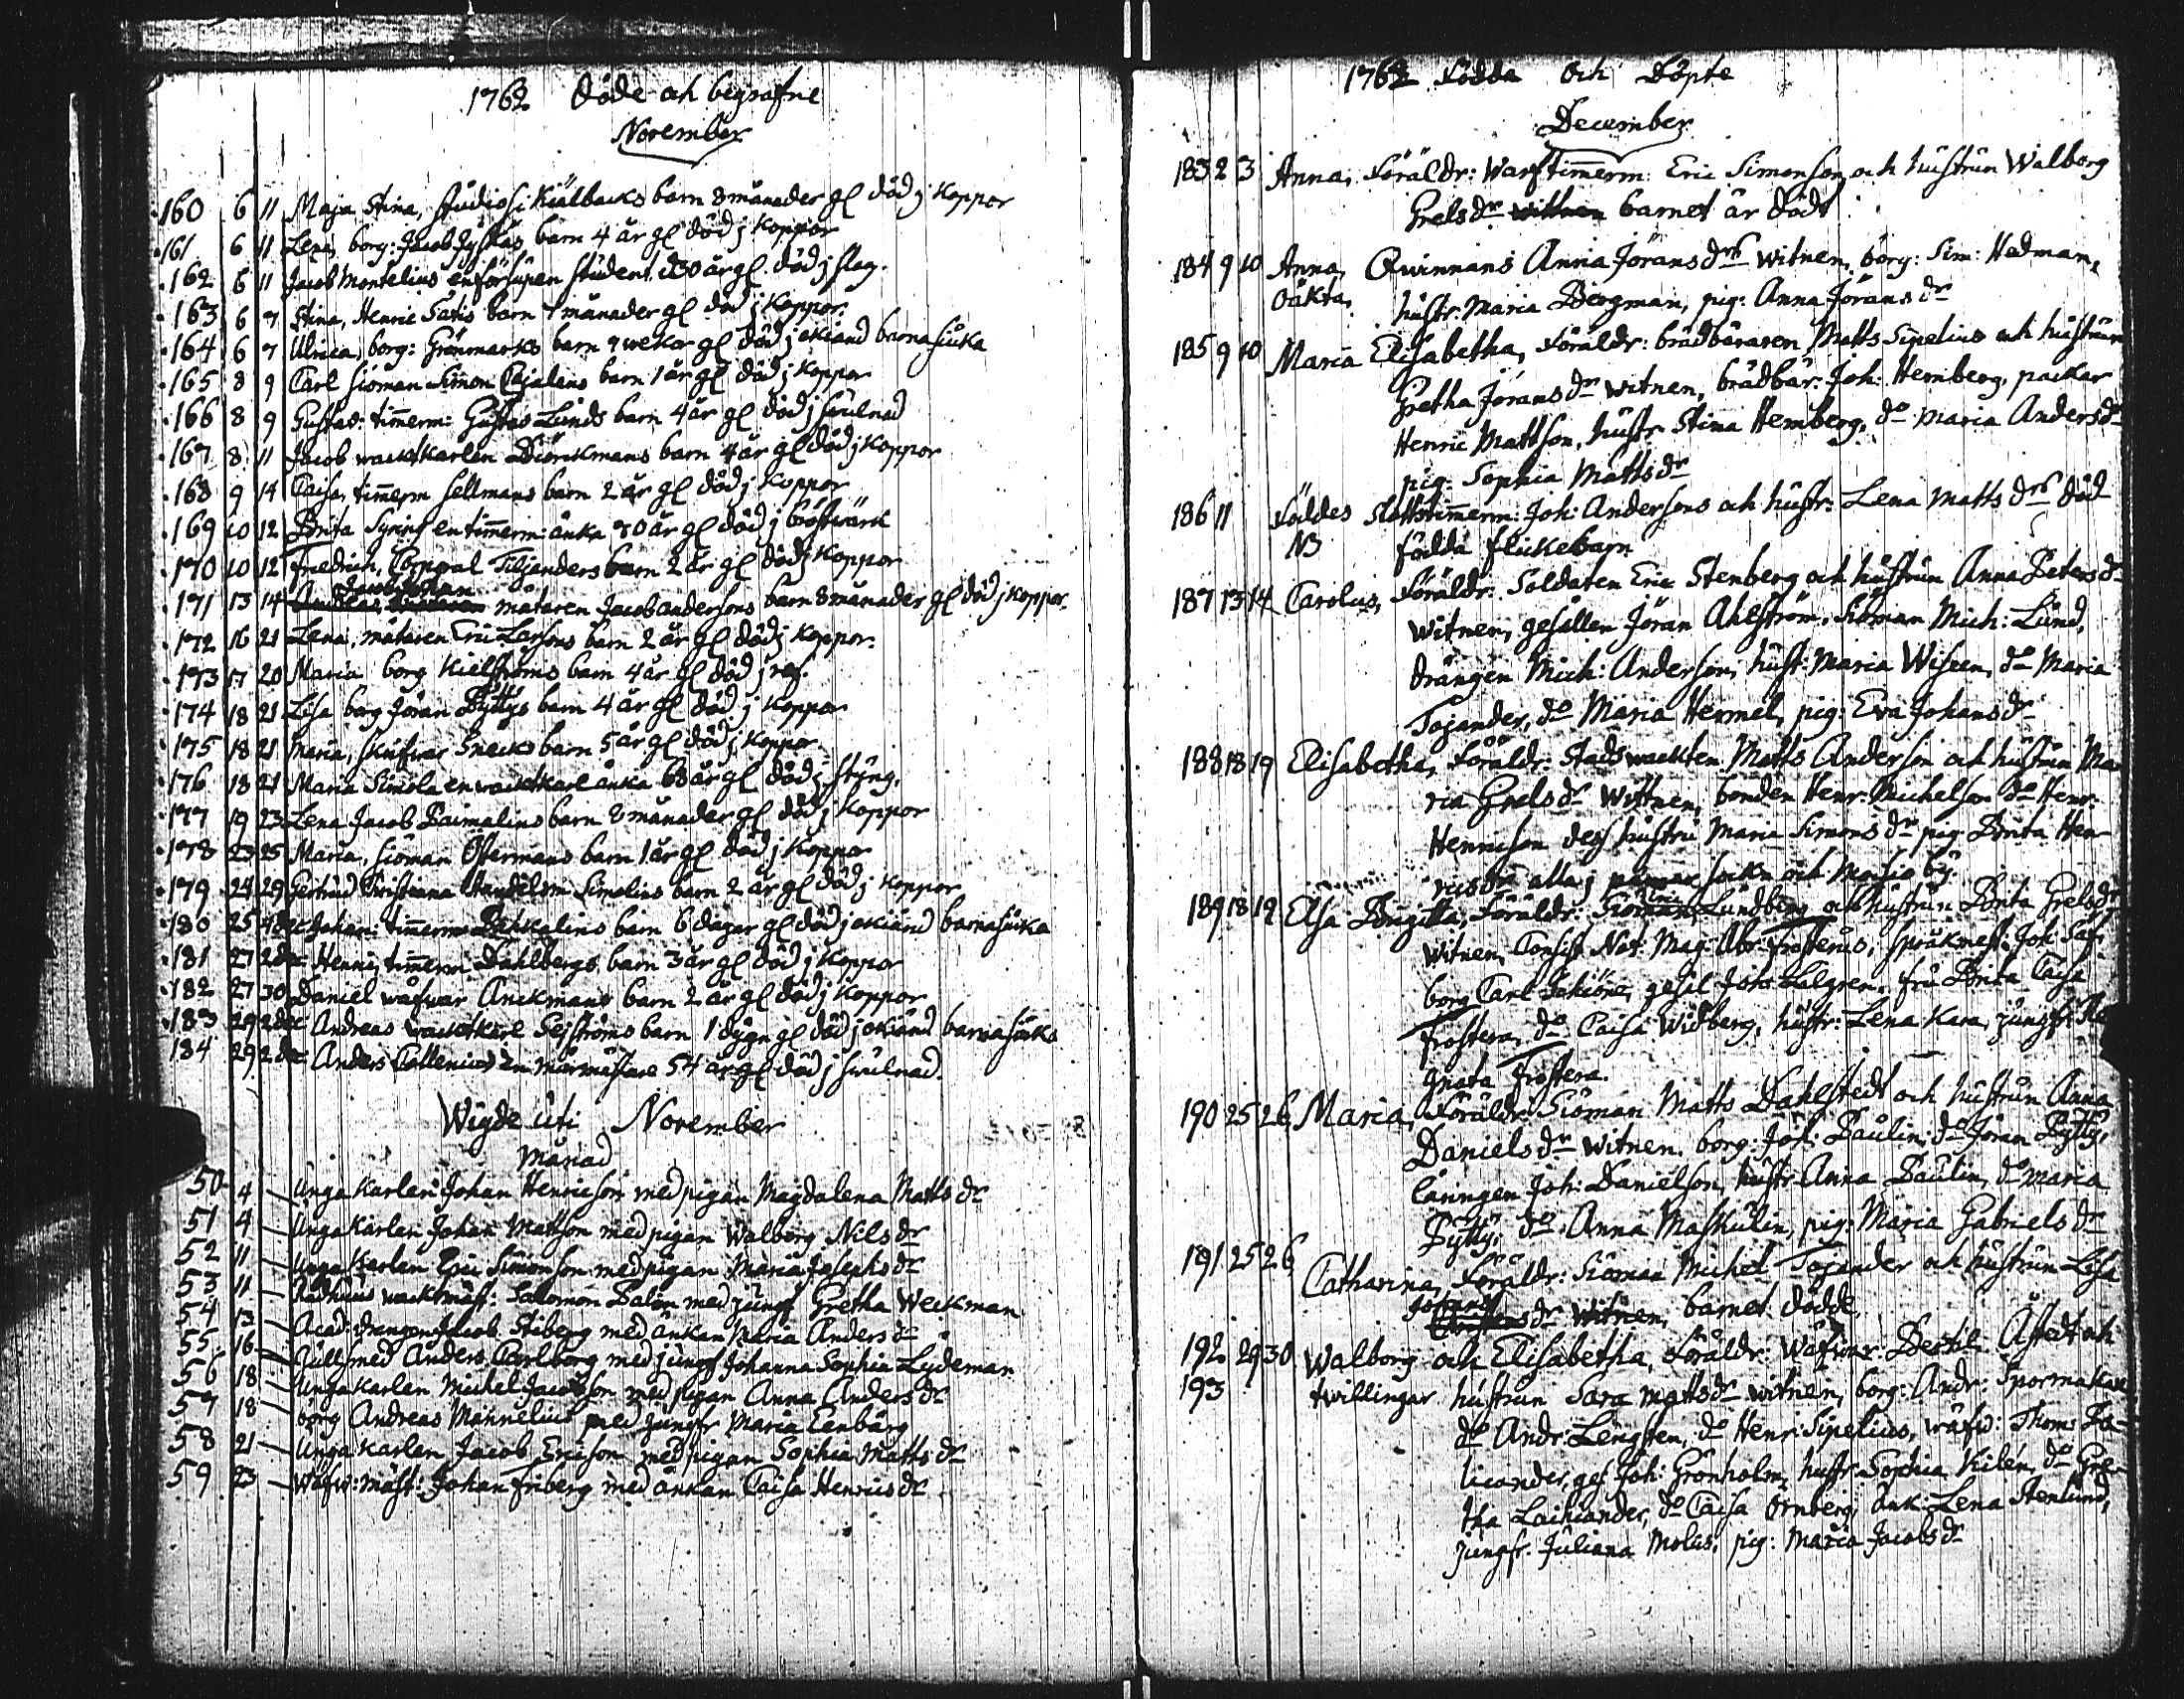 1762 Döde och begrafne
November
160 6 11 Maja Stina, studiosi Kiälbacks barn 8 månader gl död j Koppor
161 6 11 Lena, borg: Jacob barn 4 år gl död j Koppor
162 6 11 Jacob Montelius en försupen student 30 år gl. död j slag.
163 6 7 Stina, Henric Satis barn 7 månader gl död j Koppor.
164 6 7 Ulrica, borg: Grönmarks barn 9 wekor gl död j okiänd barnasiuka
165 8 9 Carl siöman Simon Cajalens barn 1 år gl död j Koppor
166 8 9 Gustav: tim̄erm: Gustav Lunds barn 4 år gl död j swulnad
167 8 11 Jacob wacktkarlen Diörckmans barn 4 år gl död j Koppor
168 9 14 Caisa, tim̄erm Sellmans barn 2 år gl död j Koppor
169 10 12 Brita en tim̄erm: änka 70 år gl död j bröstwärk
170 10 12 Friedrich, Corporal Tiljanders barn 2 år gl död j Koppor
Jacob Johan
171 13 14 mätaren Jacob Andersons barn 8 månader gl död j Koppor.
172 16 21 Lena, mätaren Eric Larsons barn 2 år gl död j Koppor.
173 17 20 Maria borg Kielströms barn 4 år gl död j ref.
174 18 21 Lisa borg Jöran Pyttys barn 4 år gl död j Koppor
175 18 21 Maria, Snecks barn 5 år gl död j Koppor.
176 18 21 Maria Simola en wacktkarl änka 68 år gl död j styng.
177 19 23 Lena Jacob Paimalins barn 2 månader gl död j Koppor
178 23 25 Maria, siöman Östermans barn 1 år gl död j Koppor
179 24 29 Gertrud Christiana Handelsm Simelius barn 2 år gl död j Koppor
180 25 4 dec Johan: tim̄erm Pahkalins barn 6 dagar gl död j okiänd barnasiuka
181 27 2 dec Henric tim̄erm Dahlbergs barn 3 år gl död j Koppor
182 27 30 Daniel wäfwar Anckmans barn 2 år gl död j Koppor
183 29 2 dec Andreas wacktkarl Sejströms barn 1 dygn gl död j okiänd barnasiuka
184 29 2 dec Anders Collenius en murmästare 54 år gl död j swulnad.
Wigde uti November
månad
50 4 — Unga Karlen Johan Henricson med pigan Magdalena Matts dr
51 4 — Unga Karlen Johan Mattson med pigan Walborg Nils dr
52 11 — Unga Karlen Eric Simonson med pigan Maria Josephs dr
53 11 — Rådhus wacktmäst: Salomon Palen med jungf Gretha Weckman
54 13 — Acad: drengen Jacob Stiberg med änkan Maria Anders dr
55 16 — Gullsmed Anders Carlborg med jungf Johanna Sophia Lydeman
56 18 — Unga Karlen Michel Jacobson med pigan Anna Anders dr
57 18 — borg Andreas Mannelius med jungfr Maria Eenbärg
58 21 — Unga Karlen Jacob Ericson med pigan Sophia Matts dr
59 23 — Wäfw: mäst: Johan Friberg med änkan Caisa Henrics dr
1762 Födda och Döpte
December
183 2 3 Anna, Föräldr: Warf tim̄erm: Eric Simonson och hustrun Walborg
Grels dr witnen barnet är dödt
184 9 10 Anna, Qwinnans Anna Jörans drs witnen, borg: Sim: Hedman,
oäkta. hustr: Maria Bergman, pig: Anna Jörans dr
185 9 10 Maria Elisabetha, Föräldr: brädbäraren Matts Sipelius och hustrun
Gretha Jörans dr witnen, brädbär: Joh: Hemberg, packar
Henric Mattson, hustr Stina Hemberg, do Maria Anders dr
pig: Sophia Matts dr
186 11 Föddes Slottstim̄erm: Joh: Andersons och hustr: Lena Matts drs död
NB födda flickebarn
187 13 14 Carolus, Föräldr: Soldaten Eric Stenberg och hustrun Anna Peters dr
witnen, gesällen Jöran Ahlström, Siöman Mich: Lund,
drängen Mich: Anderson, hustr: Maria Wiseen, do Maria
Tojander, do Maria Hermel, pig: Eva Johans dr
188 18 19 Elisabetha, Föräldr: Stadswackten Matts Anderson och hustrun Ma
ria Grels dr Wittnen, bonden Henr: Michelson do Henr:
Henricson dess hustru Maria Simons dr pig Brita Hen
rics dr alla j sockn och Moisio by
189 18 19 Elsa Brigitta, Föräldr: Siöman Lundberg och hustrun Brita Grels dr
witnen, Consist Not: Mag: Abr: Frosterus, språkmest. Joh Säf
borg Carl Schiöne, gesel Joh: Lalgren, fru Brita Caisa
Frostera, do Caisa Widberg, hustr: Lena Kara, jungfr: Re
gnata Frostera.
190 25 26 Maria, Föräldr: Siöman Matts Dahlstedt och hustrun Anna
Daniels dr witnen. borg: Joh: Paulin, do Jöran Pytty,
läringen Joh: Danielson, hustr: Anna Paulin, do Maria
Pytty, do Anna Maskulin, pig: Maria Gabriels dr
191 25 26 Catharina, Föräldr: Siöman Michel Tojander och hustrun Lisa
Johans dr witnen, barnet dödde
192 29 30 Walborg och Elisabetha, Föräldr: Wäfwar Bertil Åstedt och
193 twillingar hustrun Sara Matts dr witnen, borg: Andr:
do Andr: Lengsten, do Henr: Sipelius, wäfw: Thom: Pa-
licander, ges Joh: Grönholm, hustr: Sophia Kilen, do Gre
tha Laihiander, do Caisa Örnberg, änk: Lena Stenlund,
jungfr. Juliana Molus, pig: Maria Jacobs dr